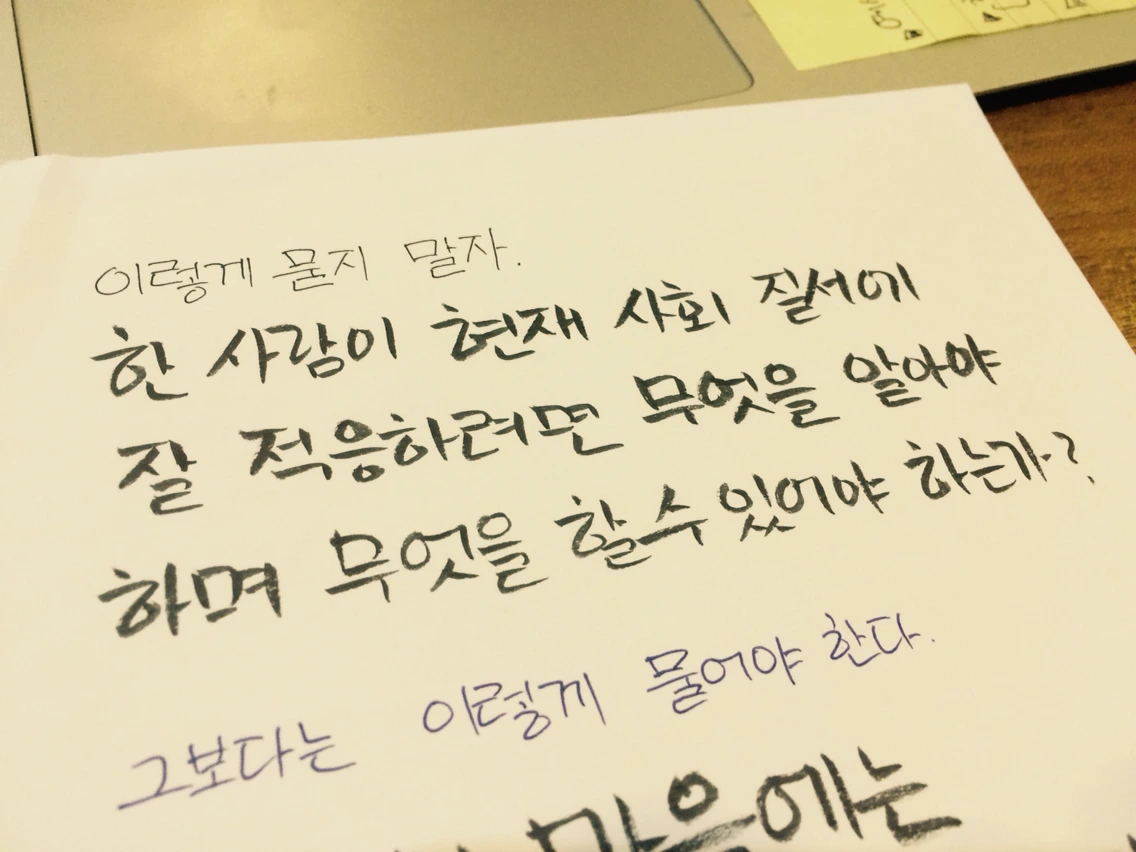 이렇게 묻지 말자.
한 사람이 현재 사회 질서에
잘 적응하려면 무엇을 알아야
하며 무엇을 할 수 있어야 하는가?
그보다는 이렇게 물어야 한다.
마음에는